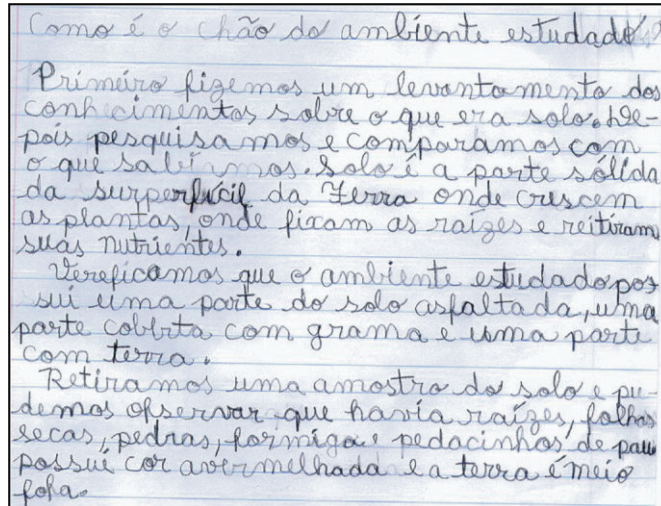 Como é o chão do ambiente estudado?
Primeiro fizemos um levantamento dos
conhecimentos sobre o que era solo. De-
pois pesquisamos e comparamos com
o que sabíamos. Solo é a parte sólida
da surperfícil da Terra onde crescem
as plantas, onde fixam as raízes e reitiram
suas nutrientes.
Vereficamos que o ambiente estudado pos-
sui uma parte do solo asfaltada, uma
parte coberta com grama e uma parte
com terra.
Retiramos uma amostra do solo e pu-
demos observar que havia raízes, folhas
secas, pedras, formiga e pedacinhos de pau
possui cor avermelhada e a terra é meio
fofa.